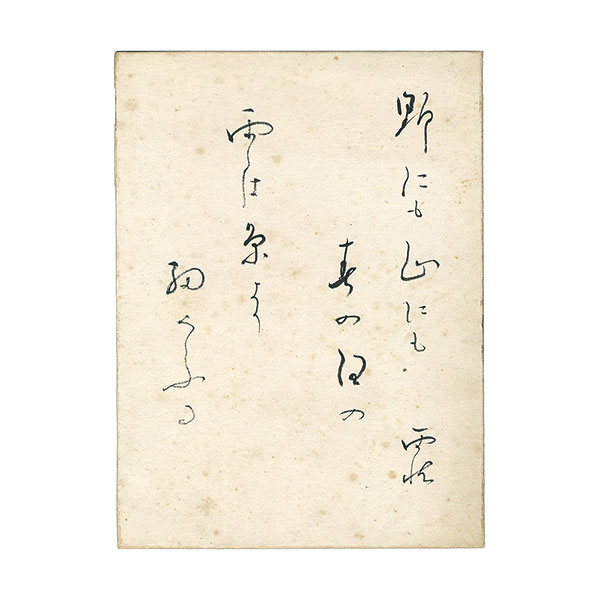 野にも山にも
春の の
雨は糸より
細くふる
雨情